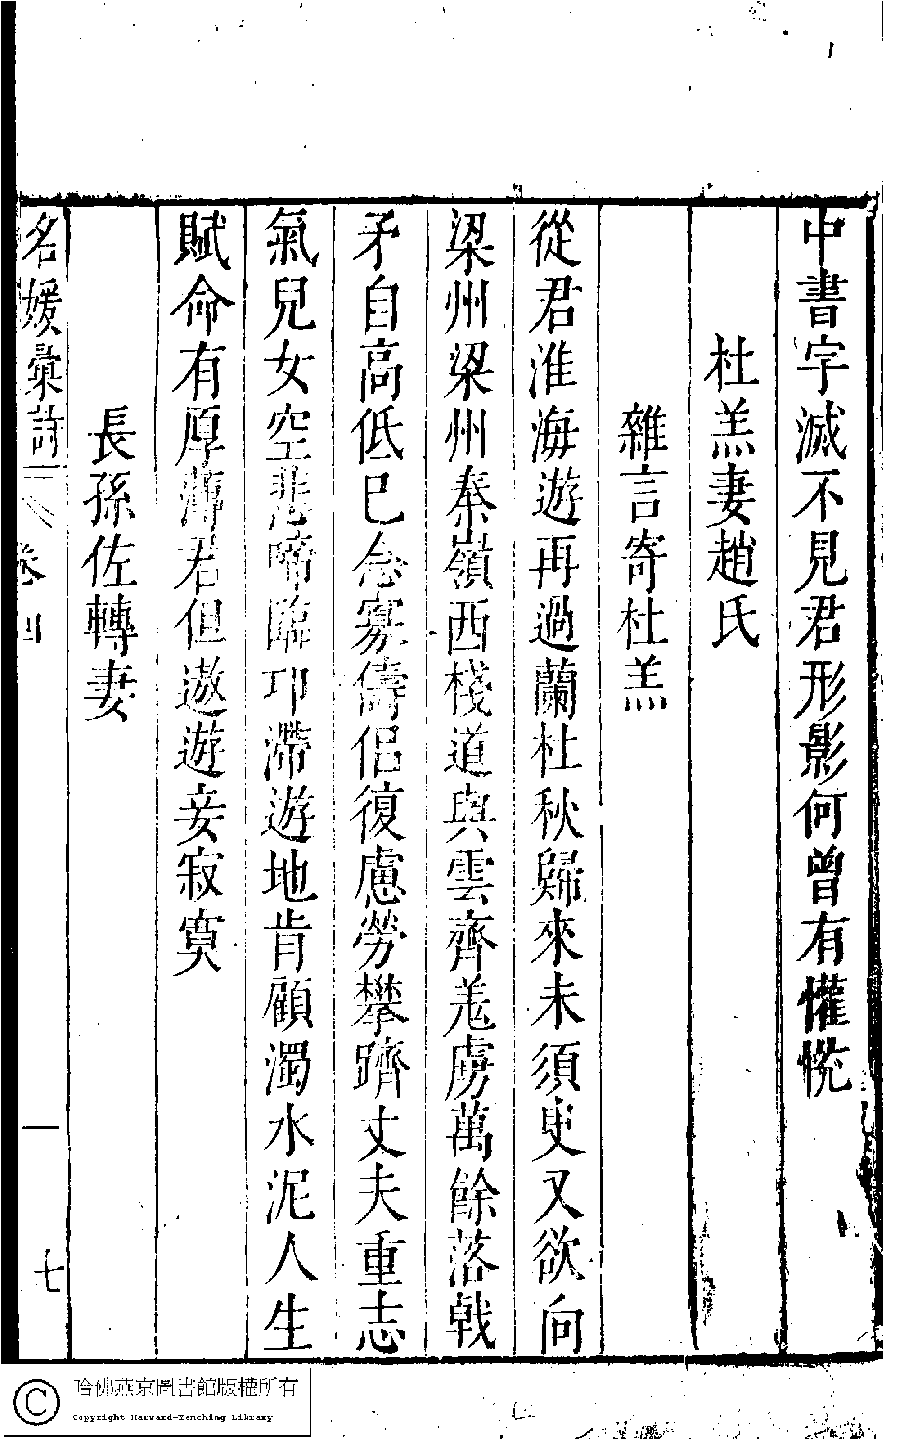 中書字滅不見君形影何曾有懽悅
杜羔妻趙氏
雜言寄杜羔
從君淮海遊再過蘭杜秋歸來未須臾又欲向
梁州梁州秦嶺西棧道與雲齊羗虜萬餘落戟
矛自高低已念寡儔侶復慮勞攀躋丈夫重志
氣兒女空悲啼臨卭滯遊地肯顧濁水泥人生
賦命有厚薄君但遨遊妾寂寞
長孫佐轉妻
名媛彙詩 卷四 七
哈佛燕京圖書館版權所有
Copyright Harvard-Yenching Library